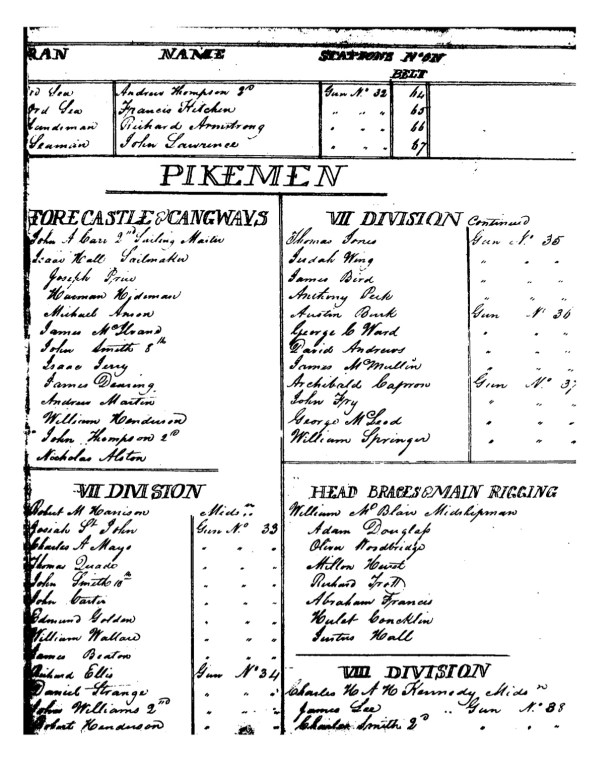 RAN NAME STATIONS Nº ON
BELT
Ord Sea Andrew Thompson 2D Gun Nº 32 64
Ord Sea Francis Kitchen " " " 65
Landsman Richard Armstrong " " " 66
Seaman John Lawrence " " " 67
PIKEMEN
FORECASTLE & GANGWAYS
John A Carr 2nd Sailing Master
Isaac Hall Sailmaker
Joseph Price
Harman
Michael Anson
James
John Smith 8th
Isaac Terry
James Dearing
Andrew Martin
William Henderson
John Thompson 2D
Nicholas Alston
VII DIVISION
Robert M Harrison Midsn
Josiah St John Gun Nº 33
Charles A Mayo " " "
Thomas Quade " " "
John Smith 10th " " "
John Carter " " "
Edmund Golden " " "
William Wallace " " "
James Beaton " " "
Richard Ellis Gun Nº 34
Daniel Strange " " "
John Williams 2nd " " "
Robert Henderson " " "
VII DIVISION Continued
Thomas Jones Gun Nº 35
Judah Wing " " "
James Bird " " "
Anthony Peck " " "
Austin Burk Gun Nº 36
George C Ward " " "
David Andrews " " "
James McMullin " " "
Archibald Capron Gun Nº 37
John Fry " " "
George McLeod " " "
William Springer " " "
HEAD BRACES & MAIN RIGGING
William Mc Blair Midshipman
Adam Douglass
Oliver Woodbridge
Milton Hurst
Richard Trott
Abraham Francis
Hulet Concklin
Justus Hall
VIII DIVISION
Charles H A H Kennedy Midsn
James Lee .. Gun Nº 38
Charles Smith 2D " " "